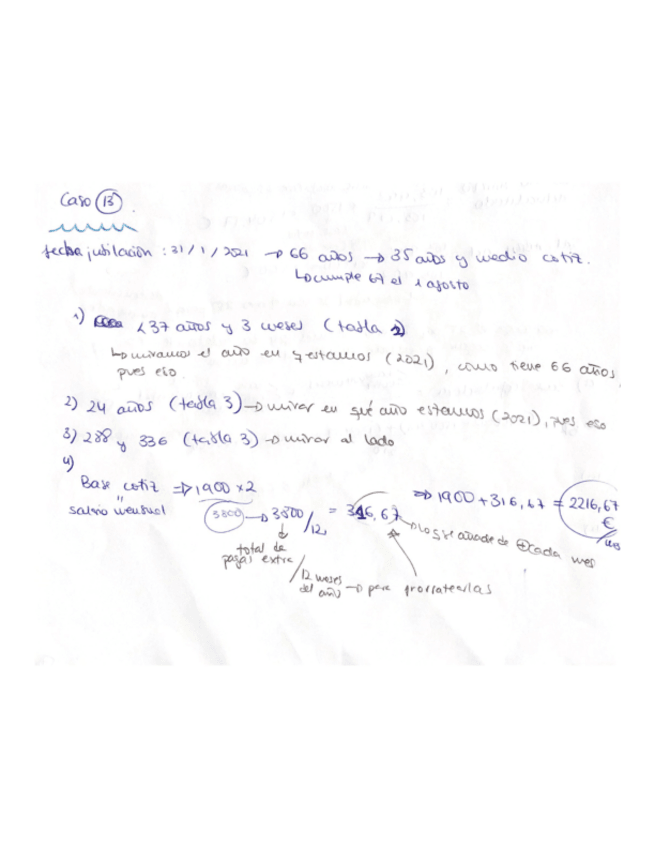 Caso 13.
fecha jubilación : 31/1/2021 → 66 años → 35 años y medio cotiz.
↳ cumple 67 el 1 agosto
1) < 37 años y 3 meses (tabla 2)
↳ miramos el año en q estamos (2021), como tiene 66 años,
pues eso.
2) 24 años (tabla 3) → mirar en qué año estamos (2021), pues eso
3) 288 y 336 (tabla 3) → mirar al lado
4)
Base cotiz ⇒ 1900 x2
"
salario mensual
3800 → 3800/12 = 316,67
⇒ 1900 + 316,67 = 2216,67
€/mes
→ lo q se añade de cada mes
total de
pagas extra
/12 meses
del año → para prorratearlas